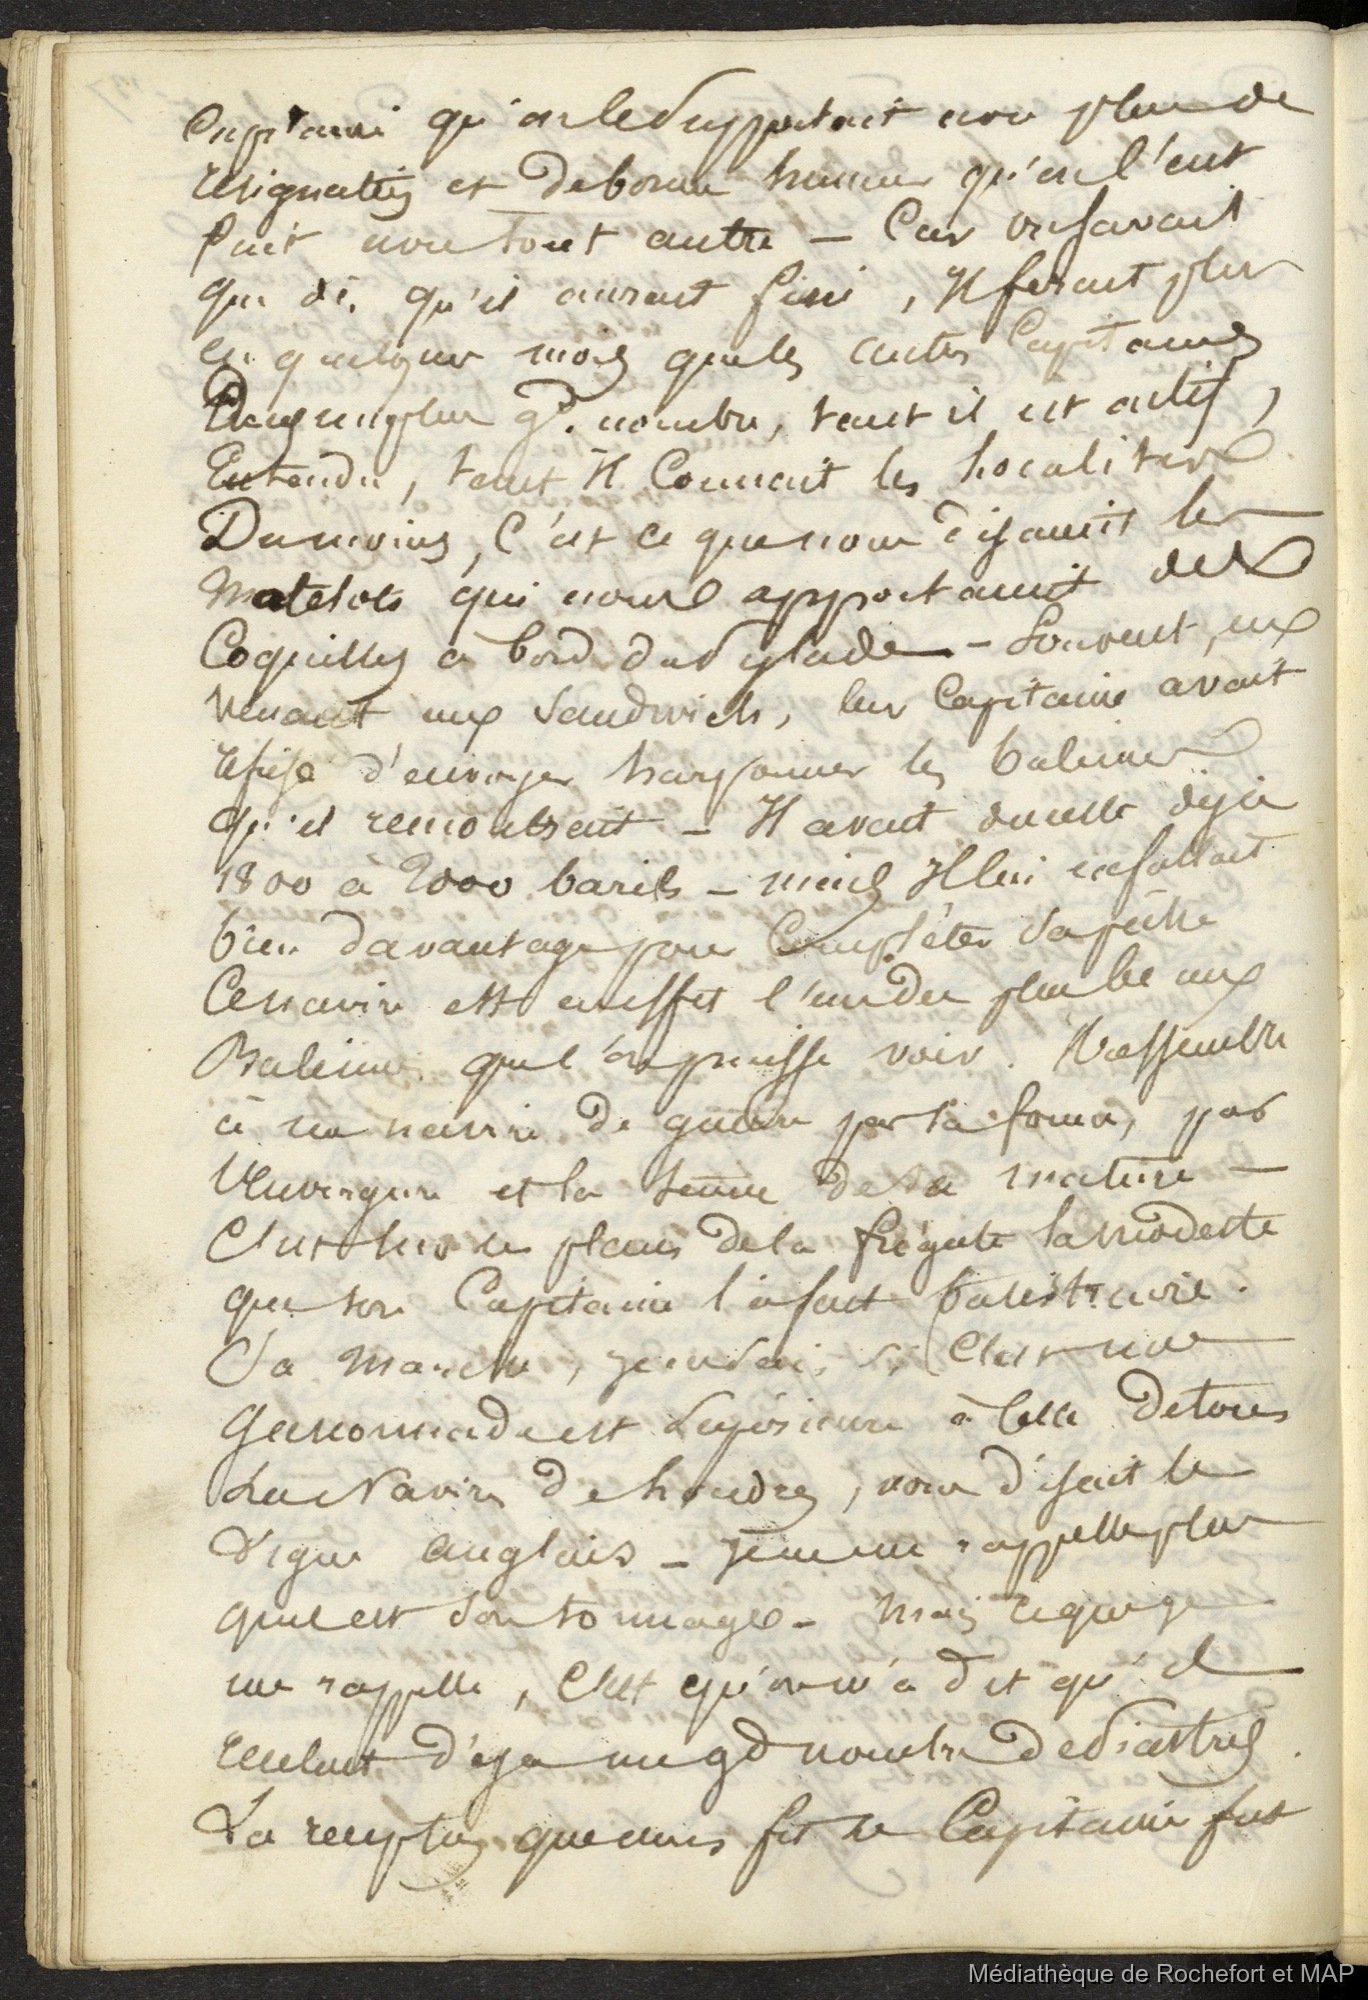 Capitaine qu'on le supportait avec plus de
résignation et de bonne humeur qu'on l'eut
fait avec tout autre — Car on savait
que dès qu'il aurait fini, Il ferait plus
en quelques mois que les autres Capitaines
Dans un plus gd. nombre, tant il est actif,
Entendu, tant Il Connait les Localités
Du moins, C'est ce que nous disaient les
Matelots qui nous apportaient des
Coquilles à bord du Pylade — Souvent, en
venant aux Sandwich, leur Capitaine avait
refusé d'envoyer harponner les baleines
qu'il rencontrait — Il avait en cale déjà
1800 à 2000 barils — mais Il lui en fallait
bien davantage pour Compléter sa pêche
Ce navire est en effet l'un des plus beaux
Baleiniers que l'on puisse voir. Il ressemble
à un navire de guerre par sa forme, par
l'Envergure et la tenue de sa mature —
C'est sur les plans de la frégate la modeste
que son Capitaine l'a fait Construire.
Sa marche,
est supérieure à celle de tous
Les Navires de Londres, nous disait le
anglais — Je ne me rappelle plus
quel est son tonnage — Mais ce que je
me rappelle, C'est qu'on m'a dit qu'il
déjà un gd nombre de
La reception que nous fit le Capitaine fut
Médiathèque de Rochefort et MAP